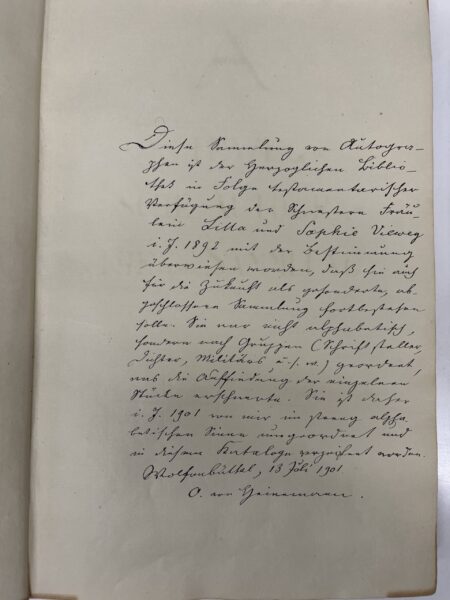 Diese Sammlung von Autogra-
phen ist der Herzoglichen Biblio-
thek in Folge testamentarischer
Verfügung der Schwestern Fräu-
lein Lilla und Sophie Vieweg
i. J. 1892 mit der Bestimmung
überwiesen worden, daß sie auch
für die Zukunft als gesonderte, ab-
geschlossene Sammlung fortbestehen
solle. Sie war nicht alphabetisch,
sondern nach Gruppen (Schriftsteller,
Dichter, Militärs u. s. w.) geordnet,
was die Auffindung der einzelnen
Stücke erschwerte. Sie ist daher
i. J. 1901 von mir im streng alpha-
betischen Sinne umgeordnet und
in diesem Kataloge verzeichnet worden.
Wolfenbüttel, 13 Juli 1901
O. von Heinemann.